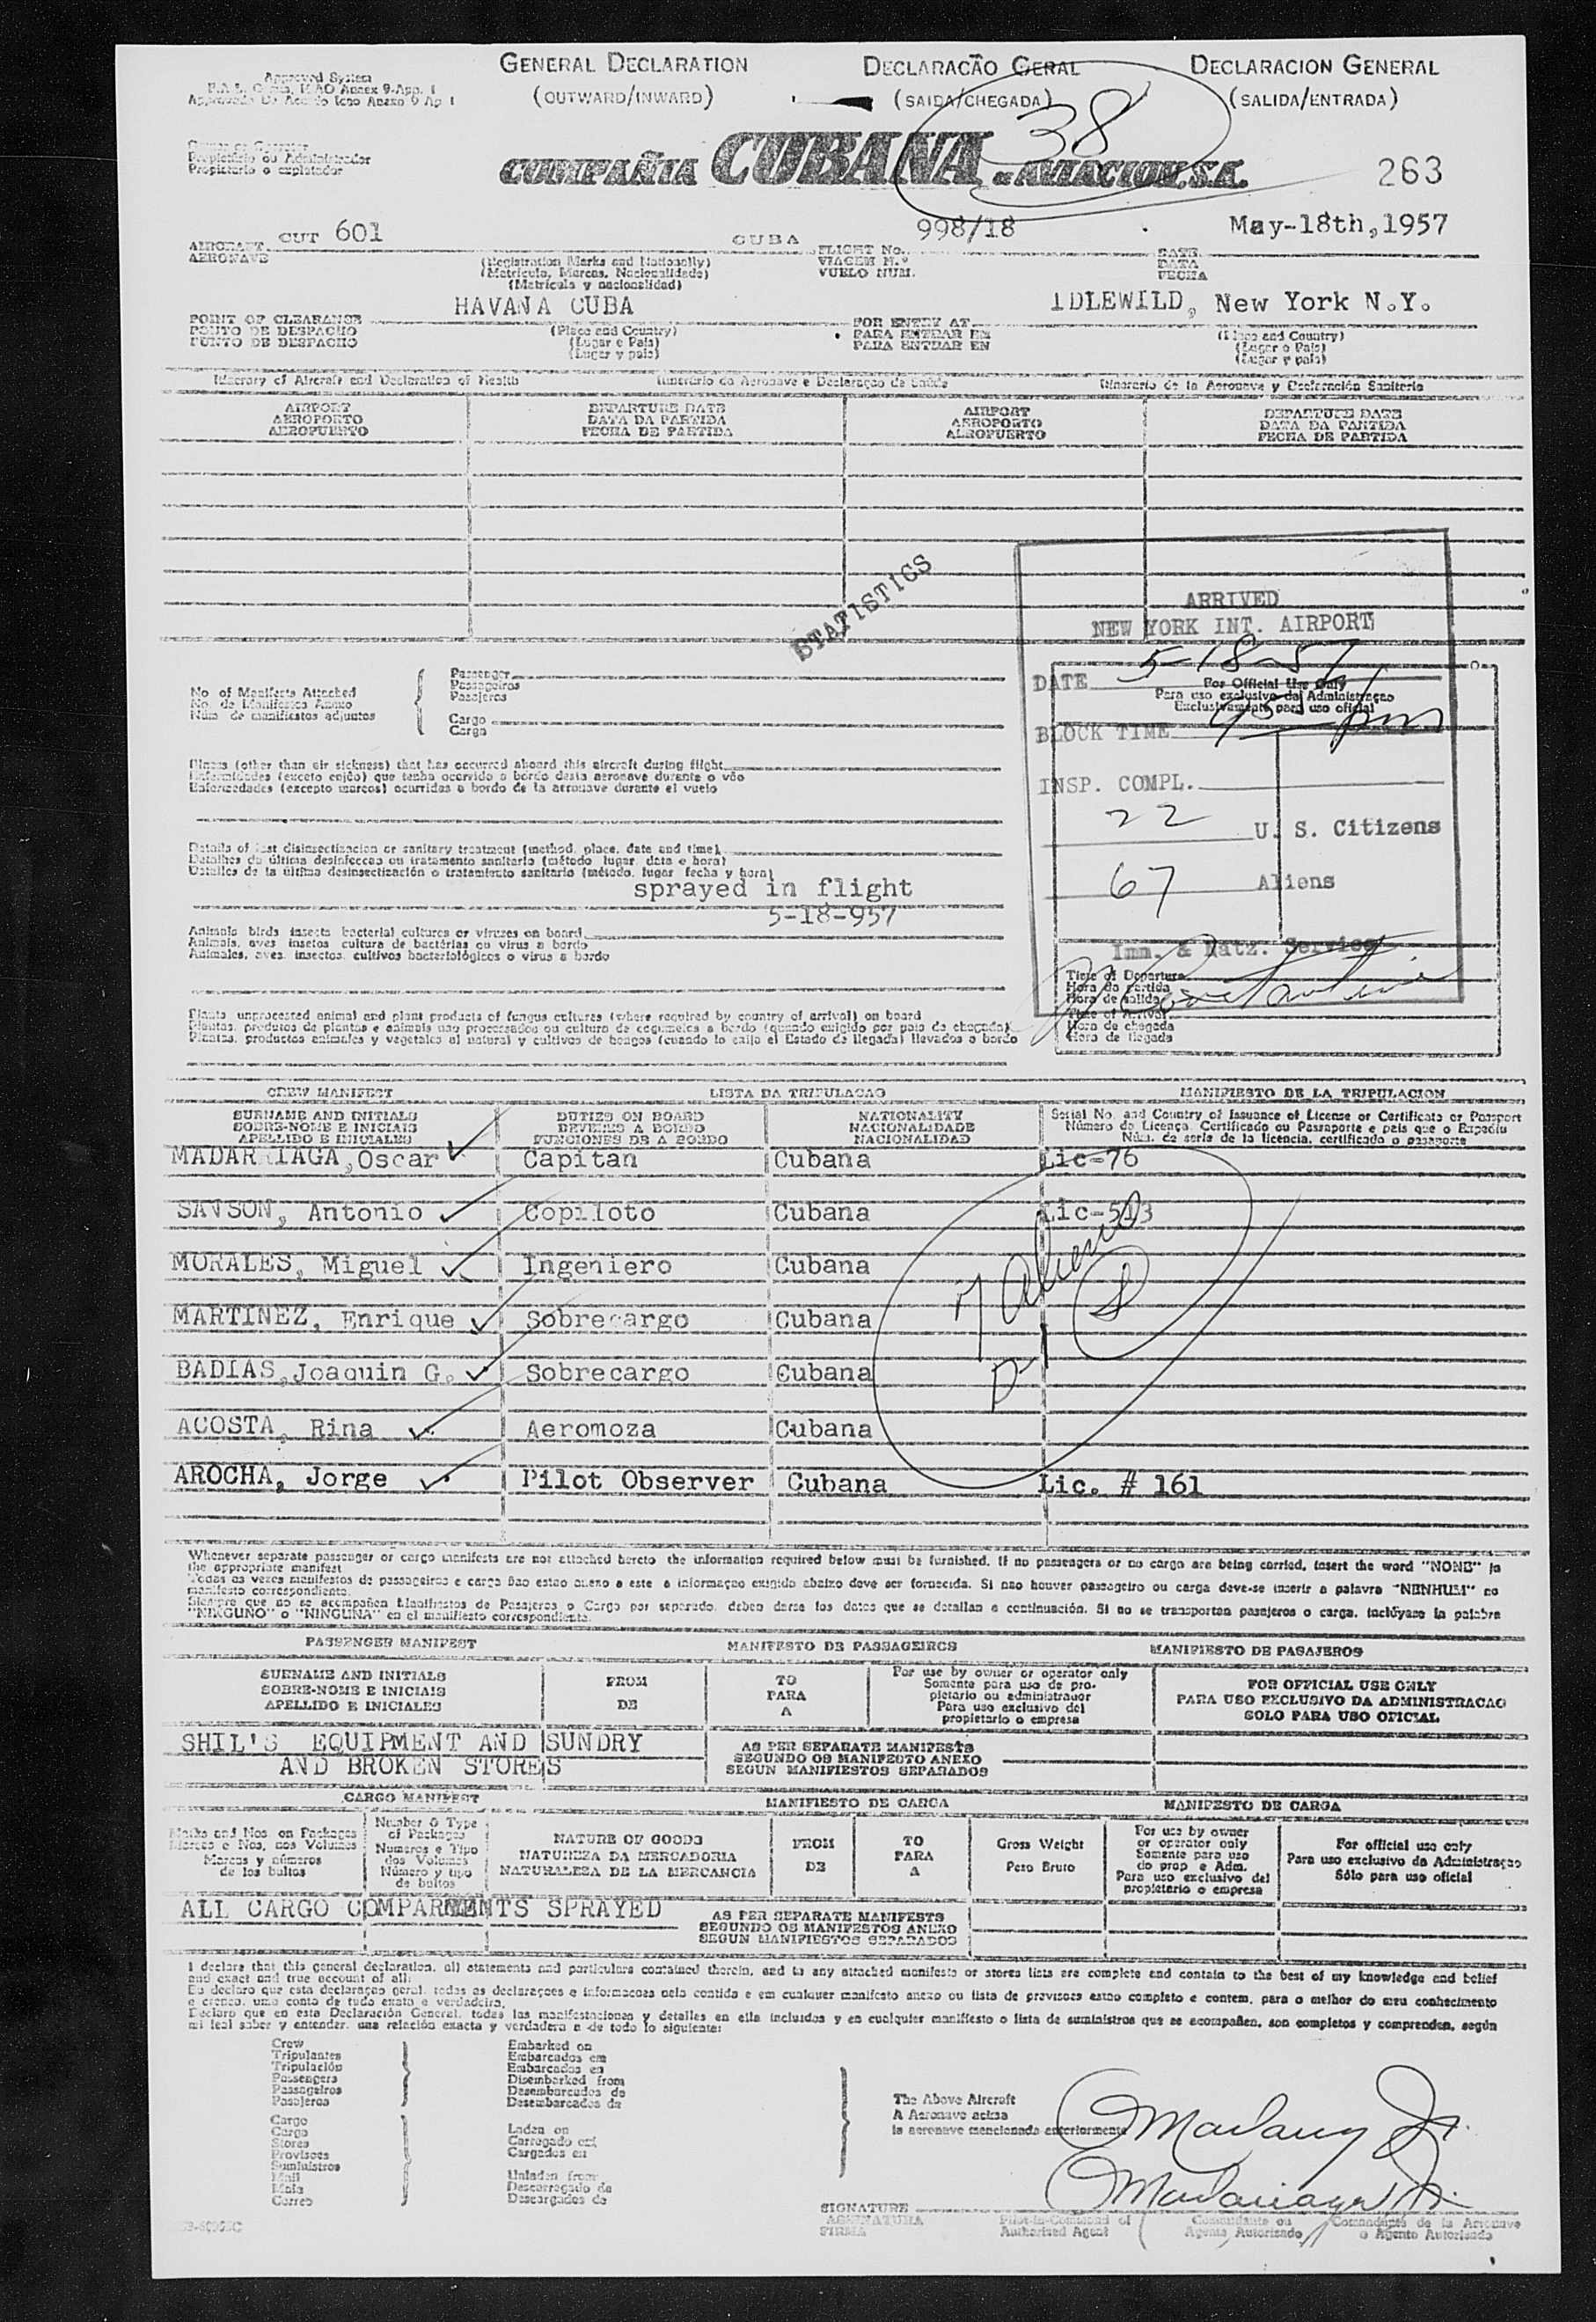 Approved System
GENERAL DECLARATION DECLARACÃO GERAL DECLARACION GENERAL
(OUTWARD/INWARD) (SAIDA/CHEGADA) (SALIDA/ENTRADA)
38
Propietário ou Administrador
Propietario o explotador
COMPAÑIA CUBANA de AVIACION, S.A. 263
AIRCRAFT CUT 601 CUBA FLIGHT No. 998/18 DATE May-18th,1957
AERONAVE (Registration Marks and Nationality) VIAGEM N.º DATA
(Matrícula, Marcas, Nacionalidade) VUELO NUM. FECHA
(Matrícula y nacionalidad)
POINT OF CLEARANCE HAVANA CUBA FOR ENTRY AT IDLEWILD, New York N.Y.
PONTO DE DESPACHO (Place and Country) PARA ENTRAR EM (Place and Country)
PUNTO DE DESPACHO (Lugar e País) PARA ENTRAR EN (Lugar e País)
(Lugar y país) (Lugar y país)
Itinerary of Aircraft and Declaration of Health Itinerário da Aeronave e Declaração de Saúde Itinerario de la Aeronave y Declaración Sanitaria
AIRPORT DEPARTURE DATE AIRPORT DEPARTURE DATE
AEROPORTO DATA DA PARTIDA AEROPORTO DATA DA PARTIDA
AEROPUERTO FECHA DE PARTIDA AEROPUERTO FECHA DE PARTIDA
STATISTICS
ARRIVED
NEW YORK INT. AIRPORT
DATE 5-18-57
For Official Use Only
Para uso exclusivo da Administração
Exclusivamente para uso oficial
BLOCK TIME pm
INSP. COMPL.
22 U. S. Citizens
67 Aliens
Imm. & Natz. Service
Time of Departure
Hora da partida
Hora de salida
Time of Arrival
Hora da chegada
Hora de llegada
No. of Manifests Attached Passenger
No. de Manifestos Anexo Passageiros
Núm. de manifiestos adjuntos Pasajeros
Cargo
Carga
Illness (other than air sickness) that has occurred aboard this aircraft during flight
Enfermidades (exceto enjôo) que tenha ocorrido a bordo desta aeronave durante o vôo
Enfermedades (excepto mareos) ocurridas a bordo de la aeronave durante el vuelo
Details of last disinsectization or sanitary treatment (method, place, date and time)
Detalhes da última desinfeccao ou tratamento sanitario (método, lugar, data e hora)
Detalles de la última desinsectización o tratamiento sanitario (método, lugar, fecha y hora)
sprayed in flight
5-18-957
Animals birds insects bacterial cultures or viruses on board
Animais, aves insetos cultura de bactérias ou virus a bordo
Animales, aves, insectos, cultivos bacteriológicos o virus a bordo
Plants unprocessed animal and plant products of fungus cultures (where required by country of arrival) on board
Plantas, produtos de plantas e animais nao processados ou cultura de cogumelos a bordo (quando exigido por pais da chegada)
Plantas, productos animales y vegetales al natural y cultivos de hongos (cuando lo exija el Estado de llegada) llevados a bordo
CREW MANIFEST LISTA DA TRIPULACAO MANIFIESTO DE LA TRIPULACION
SURNAME AND INITIALS DUTIES ON BOARD NATIONALITY Serial No. and Country of Issuance of License or Certificate or Passport
SOBRE-NOME E INICIAIS DEVERES A BORDO NACIONALIDADE Número da Licença, Certificado ou Passaporte e pais que o Expediu
APELLIDO E INICIALES FUNCIONES DE A BORDO NACIONALIDAD Núm. de serie de la licencia, certificado o pasaporte
MADARRIAGA,Oscar Capitan Cubana Lic-76
SANSON, Antonio Copiloto Cubana Lic-513
MORALES, Miguel Ingeniero Cubana
MARTINEZ, Enrique Sobrecargo Cubana
BADIAS,Joaquin G. Sobrecargo Cubana
ACOSTA, Rina Aeromoza Cubana
AROCHA, Jorge Pilot Observer Cubana Lic. # 161
7 Aliens
Whenever separate passenger or cargo manifests are not attached hereto the information required below must be furnished. If no passengers or no cargo are being carried, insert the word "NONE" in
the appropriate manifest
Todas as vezes manifestos de passageiros e carga nao estao anexo a este a informaçao exigida abaixo deve ser fornecida. Si nao houver passageiro ou carga deve-se inserir a palavra "NENHUM" no
manifesto correspondiente.
Siempre que no se acompañen Manifiestos de Pasajeros o Cargo por separado, deben darse los datos que se detallan a continuación. Si no se transportan pasajeros o carga, inclúyase la palabra
"NINGUNO" o "NINGUNA" en el manifiesto correspondiente.
PASSENGER MANIFEST MANIFESTO DE PASSAGEIROS MANIFIESTO DE PASAJEROS
SURNAME AND INITIALS FROM TO For use by owner or operator only FOR OFFICIAL USE ONLY
SOBRE-NOME E INICIAIS DE PARA Somente para uso de pro- PARA USO EXCLUSIVO DA ADMINISTRACAO
APELLIDO E INICIALES A pietario ou administrador SOLO PARA USO OFICIAL
Para uso exclusivo del
propietario o empresa
SHIL'S EQUIPMENT AND SUNDRY AS PER SEPARATE MANIFESTS
AND BROKEN STORES SEGUNDO OS MANIFESTO ANEXO
SEGUN MANIFIESTOS SEPARADOS
CARGO MANIFEST MANIFIESTO DE CARGA MANIFESTO DE CARGA
Marks and Nos on Packages Number & Type of Packages NATURE OF GOODS FROM TO Gross Weight For use by owner or operator only For official use only
Marcas e Nos, nos Volumes Numeros e Tipo dos Volumes NATUREZA DA MERCADORIA DE PARA Peso Bruto Somente para uso do prop e Adm. Para uso exclusivo da Administraçao
Marcas y números de los bultos Número y tipo de bultos NATURALEZA DE LA MERCANCIA A Para uso exclusivo del propietario o empresa Sólo para uso oficial
ALL CARGO COMPARMENTS SPRAYED AS PER SEPARATE MANIFESTS
SEGUNDO OS MANIFESTOS ANEXO
SEGUN MANIFIESTOS SEPARADOS
I declare that this general declaration, all statements and particulars contained therein, and in any attached manifests or stores lists are complete and contain to the best of my knowledge and belief
and exact and true account of all:
Eu declaro que esta declaraçao geral, todas as declaraçoes e informacoes nela contida e em cualquer manifesto anexo ou lista de previsoes estao completo e contem, para o melhor do meu conhecimento
e crenca, uma conta de tudo exata e verdadeira.
Declaro que en esta Declaración General, todas las manifestaciones y detalles en ella incluidos y en cualquier manifiesto o lista de suministros que se acompañen, son completos y comprenden, según
mi leal saber y entender, una relación exacta y verdadera de todo lo siguiente:
Crew Embarked on
Tripulantes Embarcados em
Tripulación Embarcados en
Passengers Disembarked from
Passageiros Desembarcados de
Pasajeros Desembarcados de
The Above Aircraft
A Aeronave acima
la aeronave mencionada anteriormente
Cargo Laden on
Carga Carregado em
Stores Cargados en
Provisoes
Suministros
Mail Unladen from
Mala Descarregado de
Correo Descargados de
SIGNATURE Pilot-in-Command of Comandante ou Comandante de la Aeronave
ASSINATURA Authorized Agent Agente Autorisado o Agente Autorizado
FIRMA